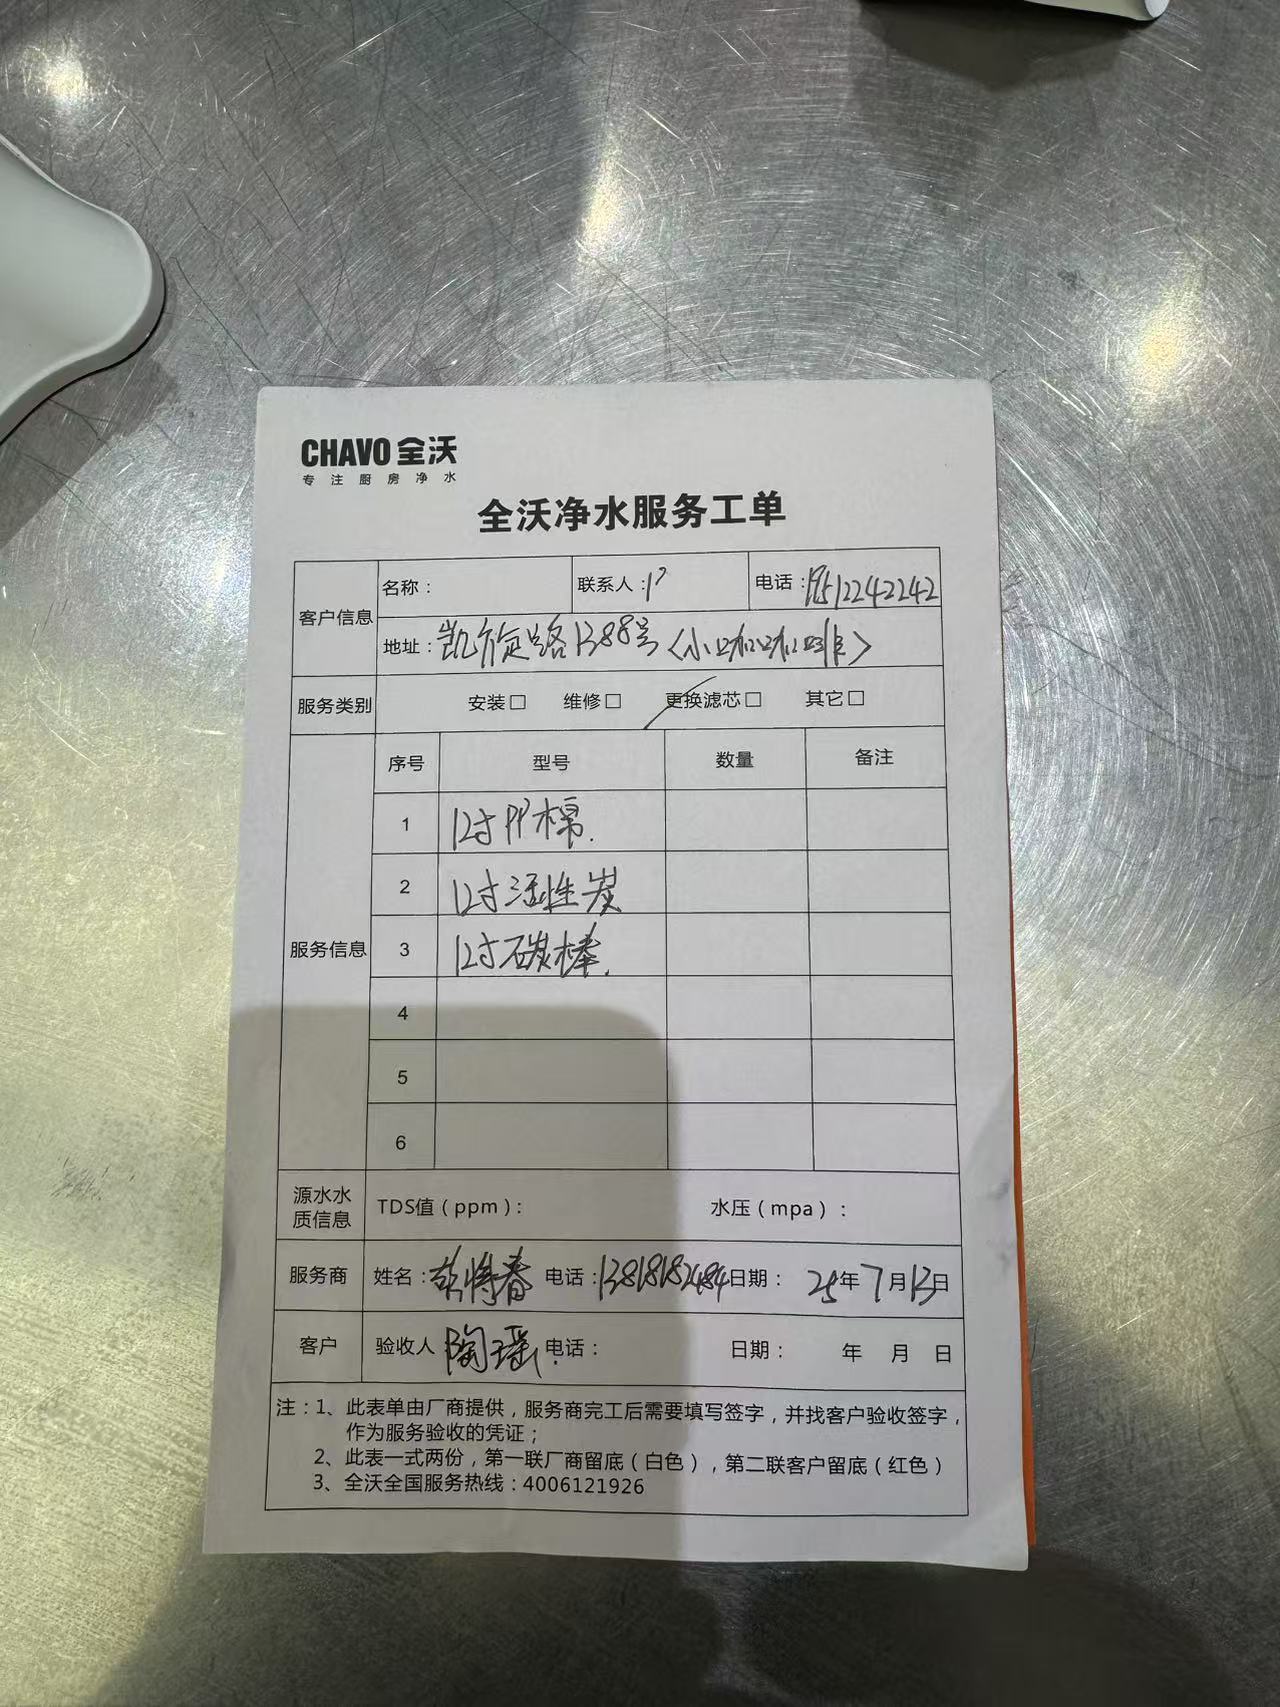 CHAVO 全沃
专注厨房净水
全沃净水服务工单
客户信息
名称： 联系人： 电话：
地址：凯旋路1388号（小咖咖啡）
服务类别 安装□ 维修□ 更换滤芯□ 其它□
服务信息
序号 型号 数量 备注
1 12寸PP棉.
2 12寸活性炭
3 12寸碳棒.
4
5
6
源水水质信息 TDS值（ppm）： 水压（mpa）：
服务商 姓名： 电话：13818182484 日期： 25年7月13日
客户 验收人：陶瑶. 电话： 日期： 年 月 日
注：1、此表单由厂商提供，服务商完工后需要填写签字，并找客户验收签字，
作为服务验收的凭证；
2、此表一式两份，第一联厂商留底（白色），第二联客户留底（红色）
3、全沃全国服务热线：4006121926